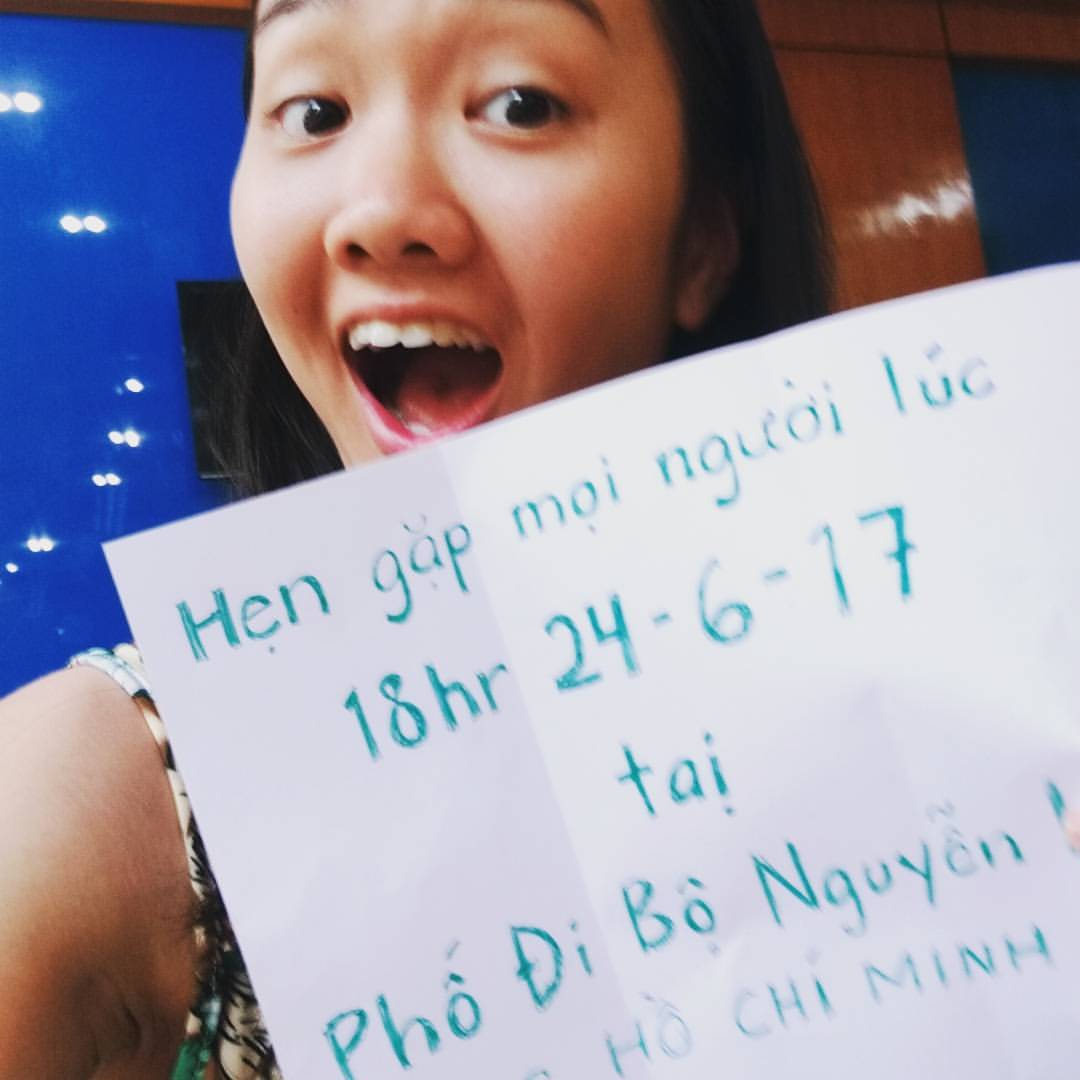 Hẹn gặp mọi người lúc
18hr 24-6-17
tại
Phố Đi Bộ Nguyễn
HỒ CHÍ MINH